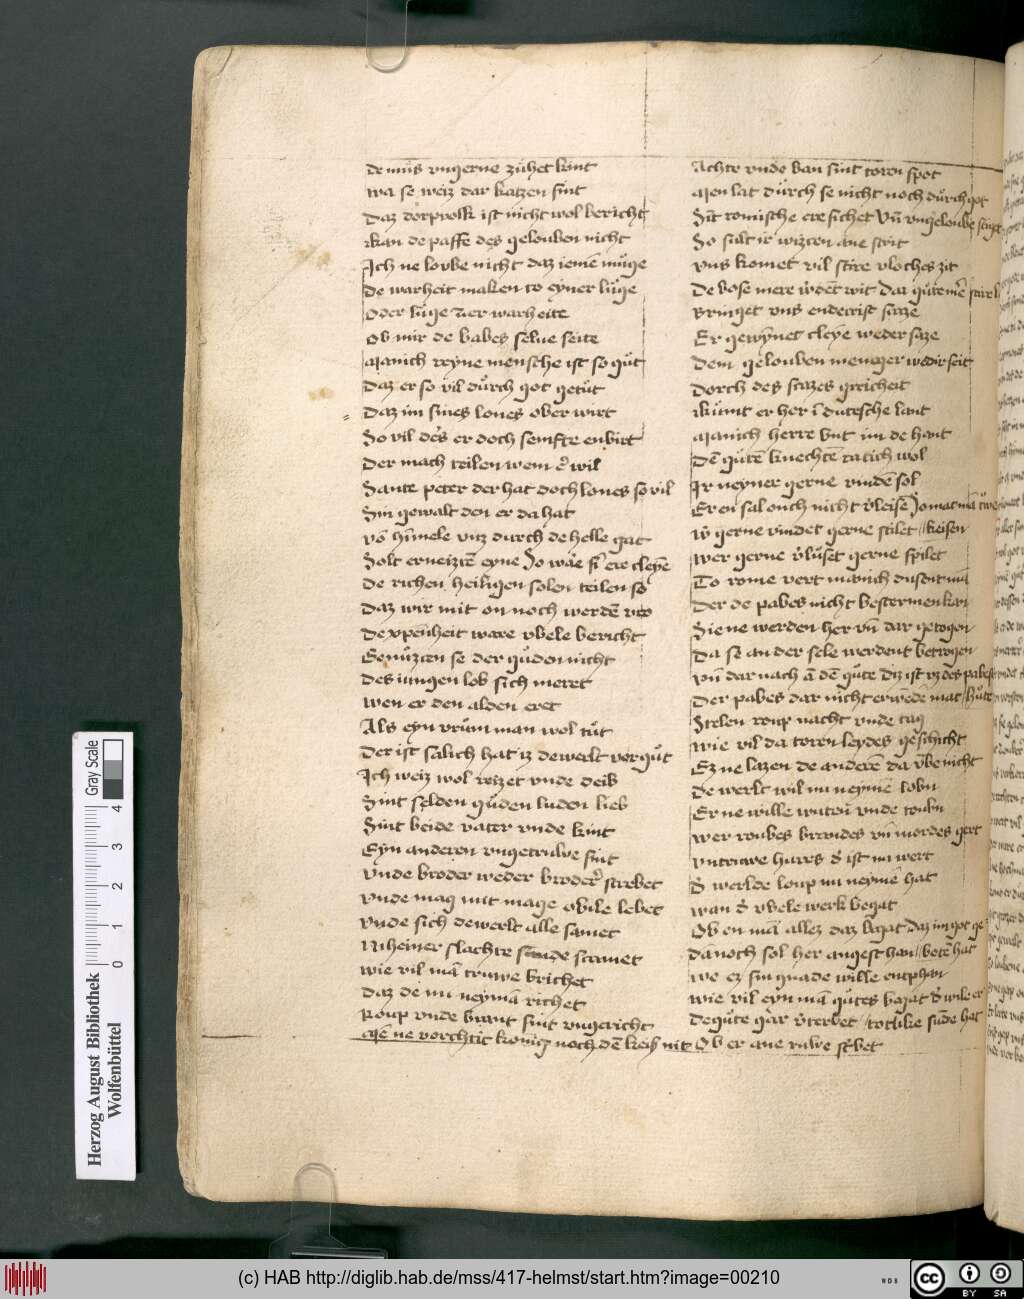 de mus vngerne zuhet kint
wa se weiz dar katzen sint
Daz dorpvolk ist nicht wol bericht
kan de paffe des gelouben nicht
Ich ne loube nicht daz iemē muge
De warheit maken to eyner luge
Oder luge zuer warheite
Ob mir de babes selue seite
Manich reyne mensche ist so gut
Daz er so vil durch got getut
Daz im sines lones ober wirt
So vil des er doch semfte enbirt
Der mach teilen wem er wil
Sante peter der hat doch lones so vil
Sin gewalt den er da hat
Vō himele vnz durch de helle gat
Solt er neizcē eyne So wāe sī ere cleyne
De richen heiligen solen teilen so
Daz wir mit on noch werdē vro
De xpenheit ware vbele bericht
Genuzcen se der guden nicht
Des iungen lob sich meret
wen er den alden eret
Als eyn vrum man wol tut
Der ist salich hat iz dewerlt vor gut
Ich weiz wol reizet vnde deib
Sint selden guden luden lieb
Sint beide vater vnde kint
Eyn anderen vngetruwe sint
Vnde broder weder broder strebet
Vnde mag mit mage obile lebet
Vnde sich dewerlt alle samet
Niheiner slachte scande scamet
wie vil mā truwe brichet
Daz de nu neymā richet
Roup vnde brant sint vngericht
Mē ne vorchtit konig noch dē keis̄ nit
Achte vnde ban sint toren spot
Men lat durch se nicht noch durch got
Sit romische ere sichet Vn̄ vngeloube siget
So sult ir wizcen ane strit
vns komet vil schire vloches zit
De bose mere w̄dēt wit Daz gutemē
Bringet vns endecrist saze
Er gewynet cleyne weder saze
Dem gelouben meniger wedir seit
Dorch des scazes gyricheit
kumt er her ī dutesche lant
Manich herre but im de hant
Dē gutē knechtē tatich wol
Ir neyner gerne vindē sol
Er en sal ouch nicht
w̄ gerne vindet gerne stilet
wer gerne v̄luset gerne spilet
To rome vert manich dusent mā
Der de pabes nicht bestermen kan
Siene werden her vn̄ dar getogen
Da se an der sele werdent betrogen
Vn̄ dar nach ā dē gute Diz ist
Der pabes dar nicht erwēde mac
Stelen roup nacht vnde tag
wie vil da toren leydes geschicht
Ez ne lazen de anderē dar v̄be nicht
De werlt wil nu neymē lobn
Er ne wille wuten̄ vnde tobn
wer roubes brandes vn̄ mordes gert
vntruwe hures d̄ ist nu wert
D̄ werlde loup nu neymē hat
wan d̄ vbele werk begat
Ob en mā allez daz began Daz im got
Danoch sol her angest han
we ez sin gnade wille entphan
wie vil eyn mā gutes begat
De gute gar v̄terbet / totlike sūde hat
Ob er ane ruwe st̄bet
Herzog August Bibliothek
Wolfenbüttel
0 1 2 3 4
Gray Scale
(c) HAB http://diglib.hab.de/mss/417-helmst/start.htm?image=00210
WDB
cc
BY SA